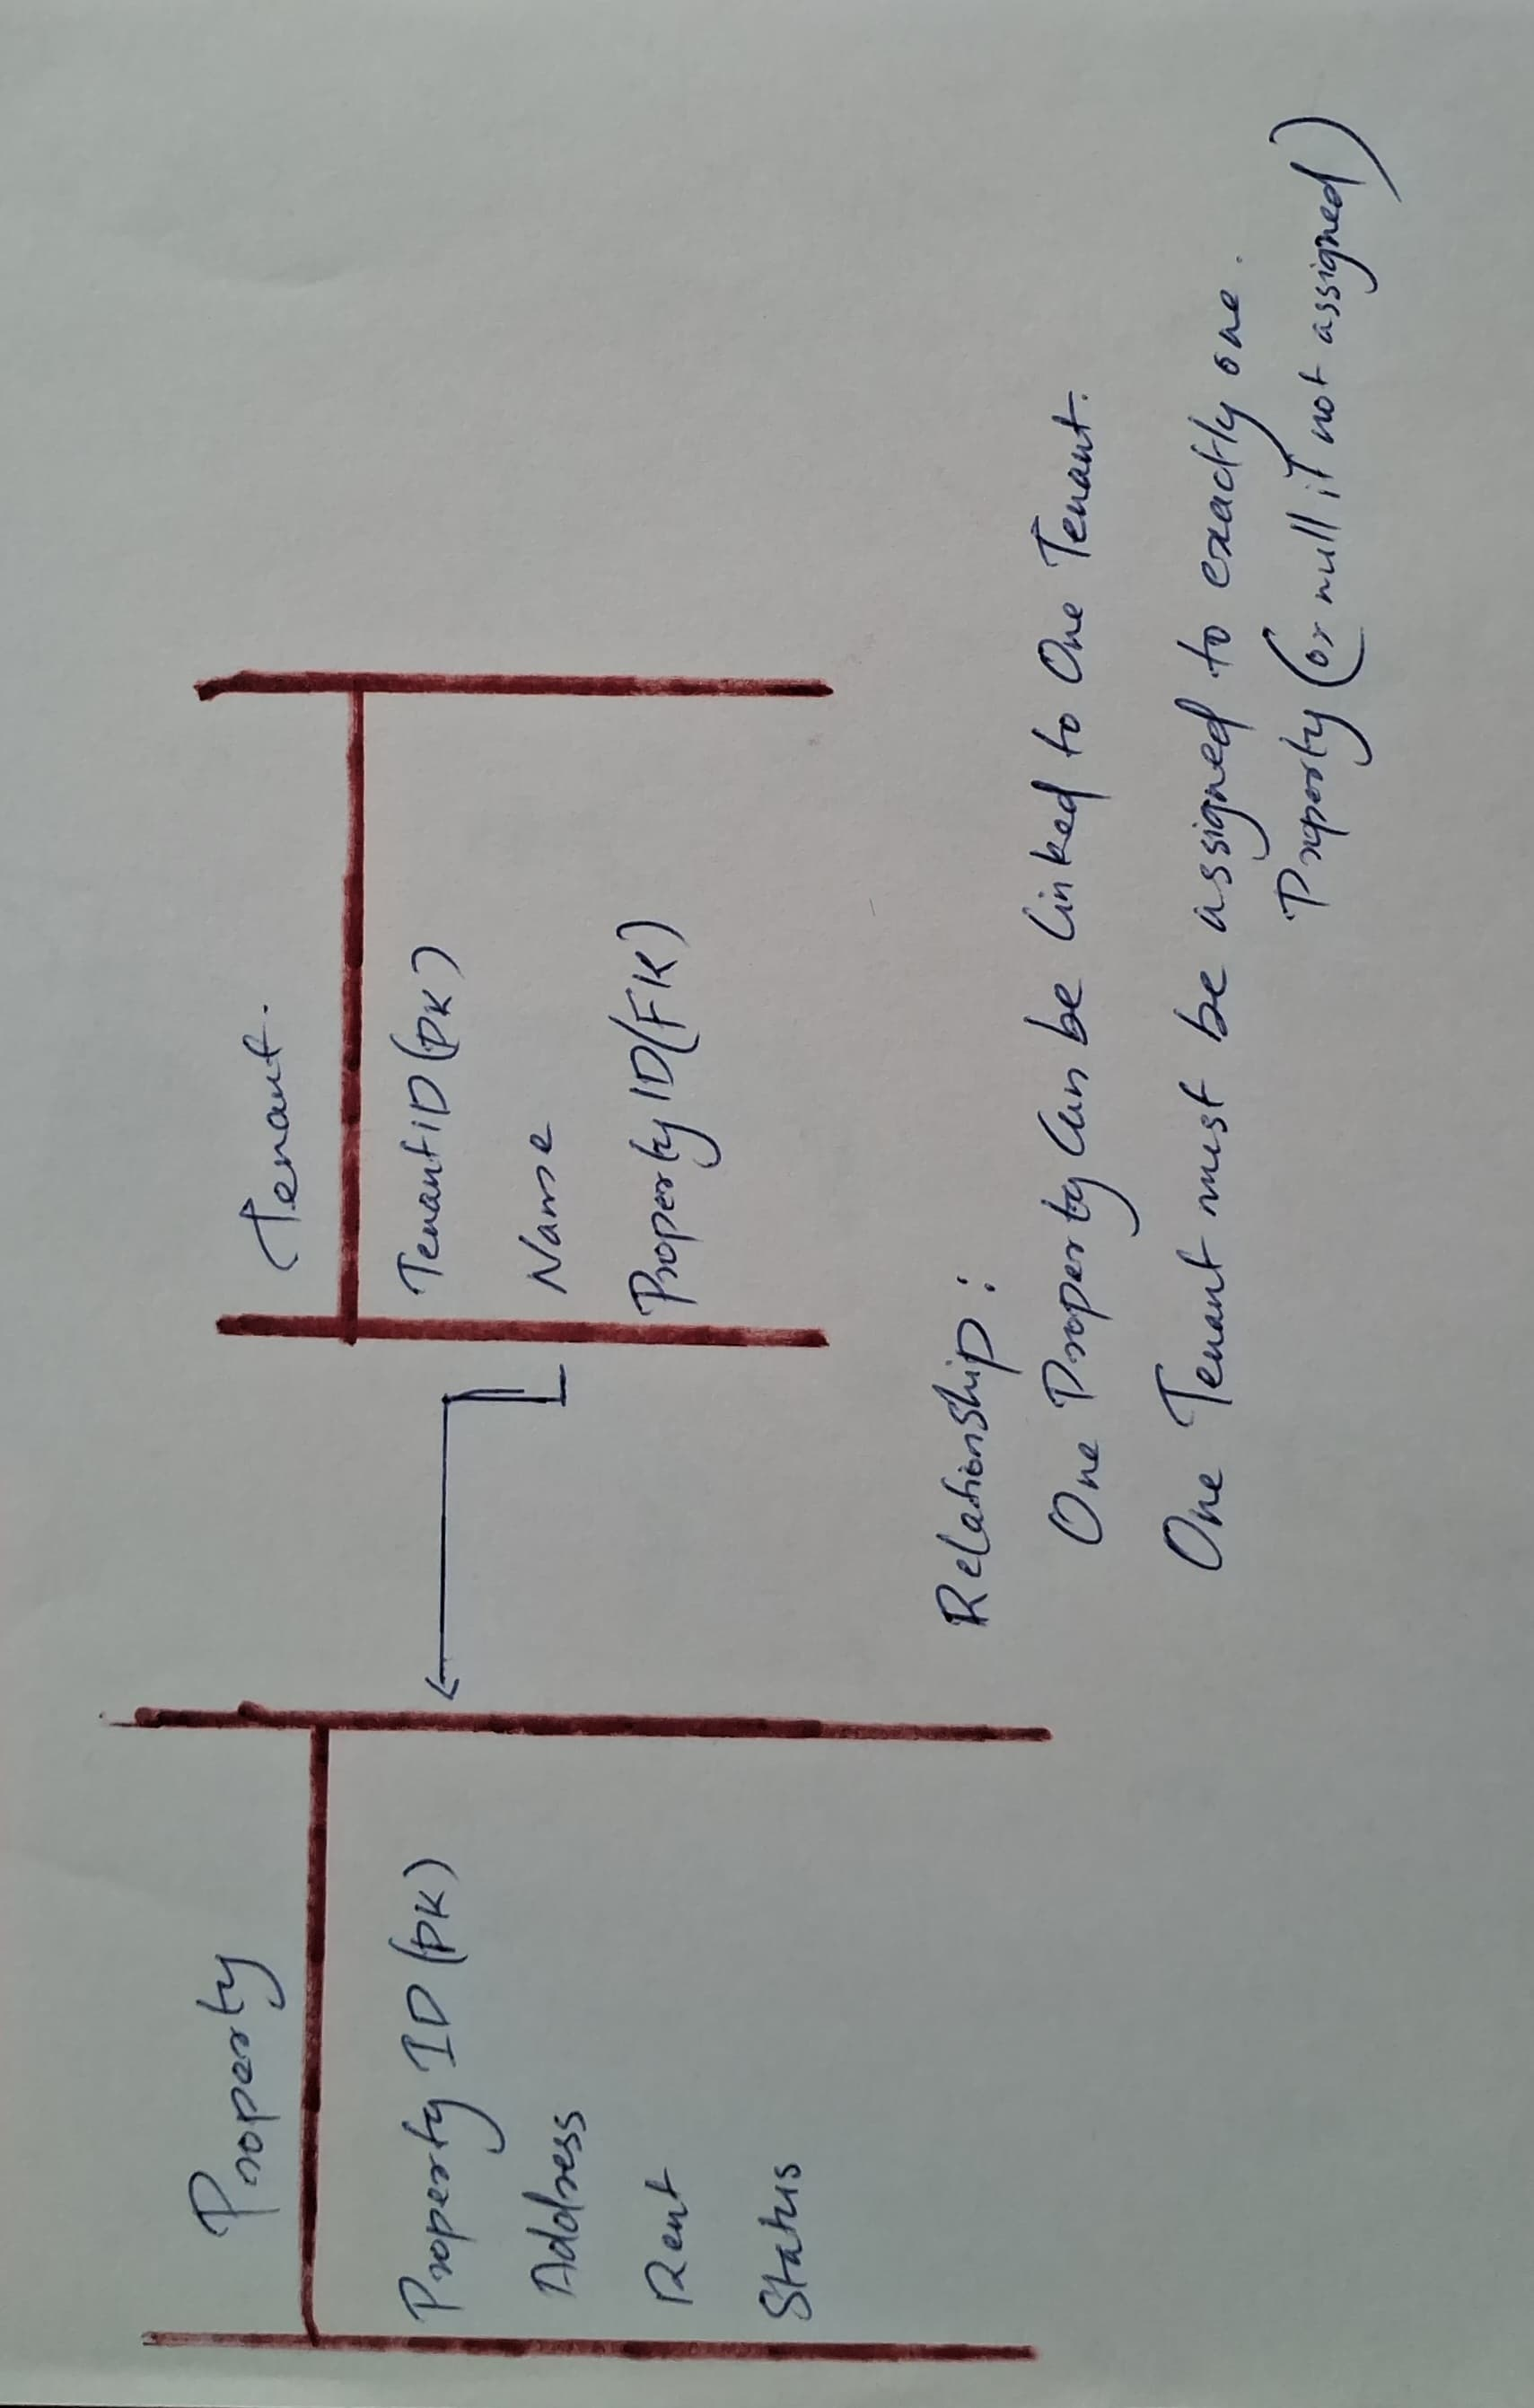 Property
Property ID (PK)
Address
Rent
Status
Tenant.
TenantID (PK)
Name
Property ID (FK)
Relationship :
One Property Can be linked to One Tenant.
One Tenant must be assigned to exactly one.
Property (or null if not assigned)